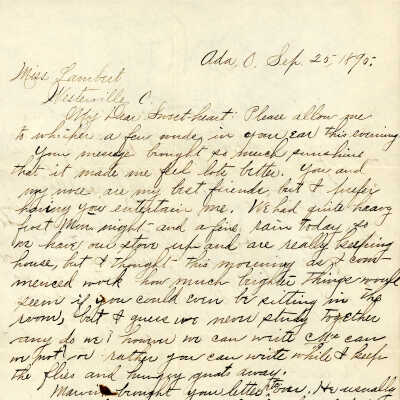 Ada, O. Sep. 25, 1895.
Miss Lambert
Westerville O.
My Dear Sweet-heart: Please allow me
to whisper a few words in your ear this evening
Your message brought so much sunshine
that it made me feel lots better. You and
my wife are my best friends but I prefer
having you entertain me. We had quite heavy
frost Mon. night and a fine rain today so
we have our stove up and are really keeping
house, but I thought this morning as I com-
menced work how much brighter things would
seem if you could even be sitting in the
room, but I guess we never study together
any do we? however we can write
or rather you can write while I keep
the flies and hungry gnat away.
brought your letter over. He usually